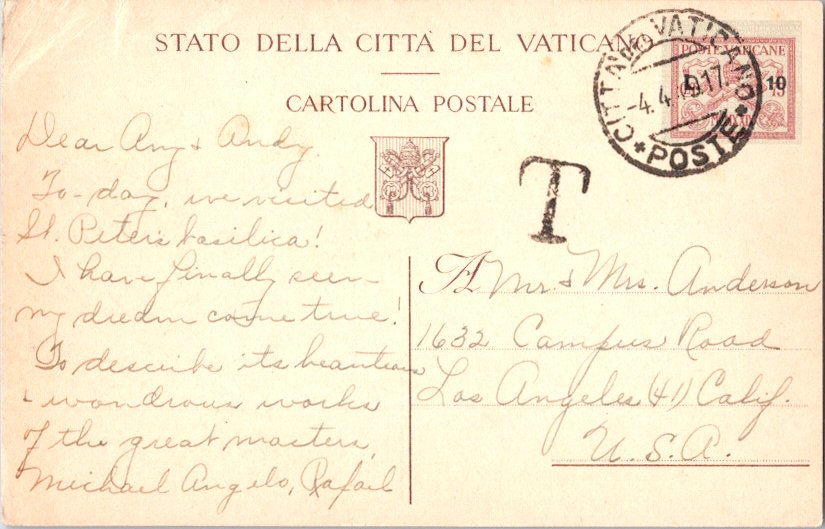 STATO DELLA CITTÀ DEL VATICANO
CARTOLINA POSTALE
CITTÀ DEL VATICANO
POSTE
POSTE VATICANE
L 10
T
Dear Any & Andy
To-day, we visited
St. Peters basilica!
I have finally seen
my dream come true!
To describe its beauteous
& wondrous works
of the great masters,
Michael Angelo, Rafail
A Mr. & Mrs. Anderson
1632 Campus Road
Los Angeles (41) Calif.
U.S.A.